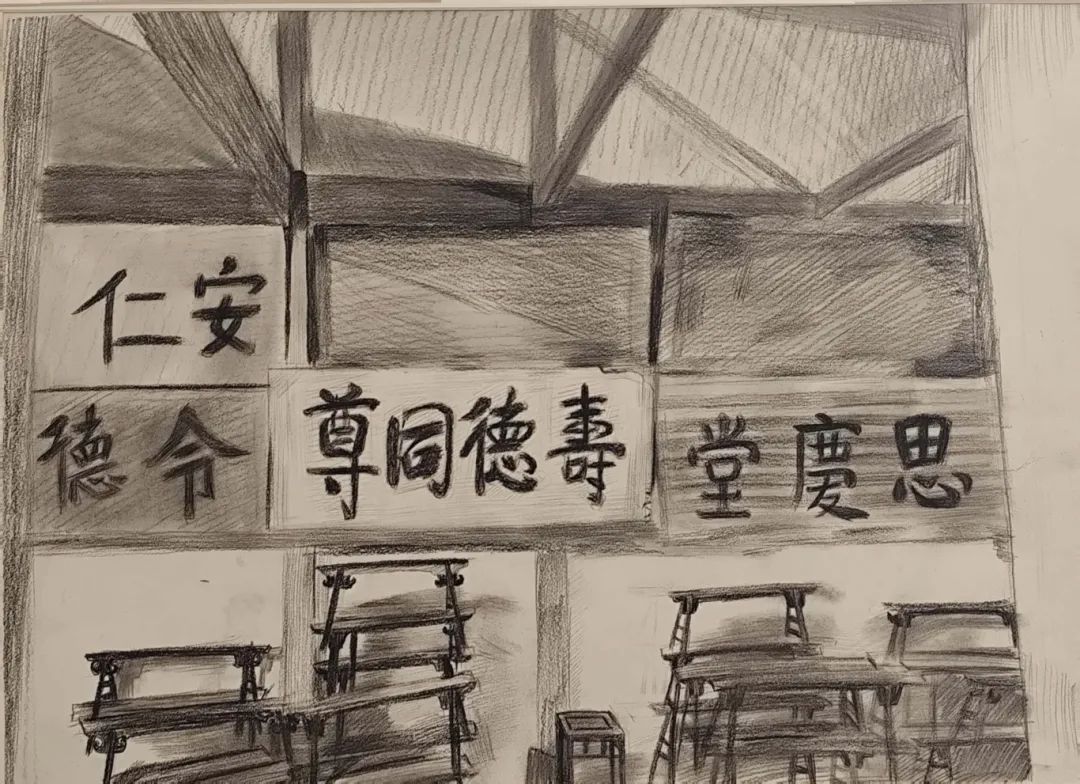 安仁
思慶堂
壽德同尊
令德